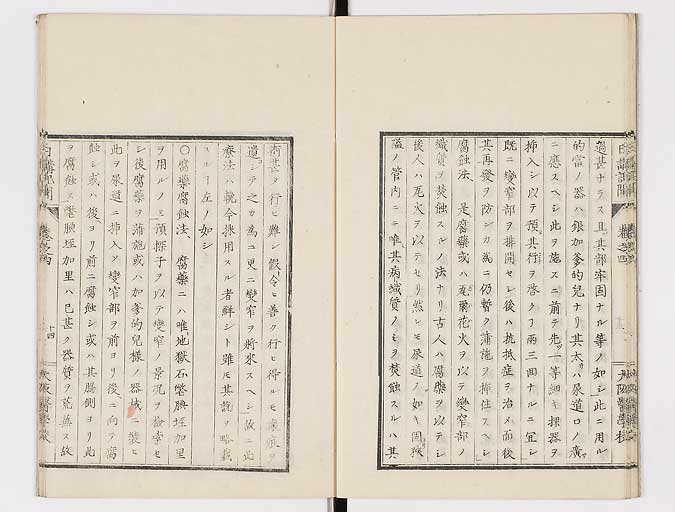 過甚ナラス且其部牢固ナル等ノ如シ此ニ用ル
的當ノ器ハ銀加爹的兒ナリ其太ハ尿道口ノ廣
ニ應スヘシ此ヲ施スニ前テ先一等細キ探器ヲ
挿入シ以テ預其行ヲ啓クヿ兩三回ナルニ宜シ
既ニ變窄部ヲ排開セシ後ハ抗抵症ヲ治メ而後
其再發ヲ防シカ為ニ仍暫ク蒲施ヲ挿住スヘシ
腐蝕法 是腐藥或ハ瓦爾花火ヲ以テ變窄部ノ
織質ヲ焚蝕スルノ法ナリ古人ハ腐藥ヲ以テシ
後人ハ瓦火ヲ以テセリ然レモ尿道ノ如キ固狹
隘ノ管内ニテ唯其病織質ノミヲ焚蝕スルハ其
術甚タ行ヒ難シ假令ヒ善ク行ヒ得ルモ瘢痕ヲ
遺シテ之カ為ニ更ニ變窄ヲ將來スヘシ故ニ此
療法ハ軌今採用スル者鮮シト雖モ其説ヲ略載
スルヿ左ノ如シ
〇腐藥腐蝕法 腐藥ニハ唯地獄石幣腆垤加里
ヲ用ルノミ預探子ヲ以テ變窄ノ景况ヲ檢索セ
シ後腐藥ヲ蒲施或ハ加爹的兒様ノ器械ニ装ヒ
此ヲ尿道ニ挿入シ變窄部ヲ前ヨリ後ニ向テ腐
蝕シ或ハ後ヨリ前ニ腐蝕シ或ハ其膓側ヨリ此
ヲ腐蝕ス幣腆垤加里ハ已甚ク器質ヲ荒蕪ス故
日講記聞
卷之四
十四
大阪醫學校